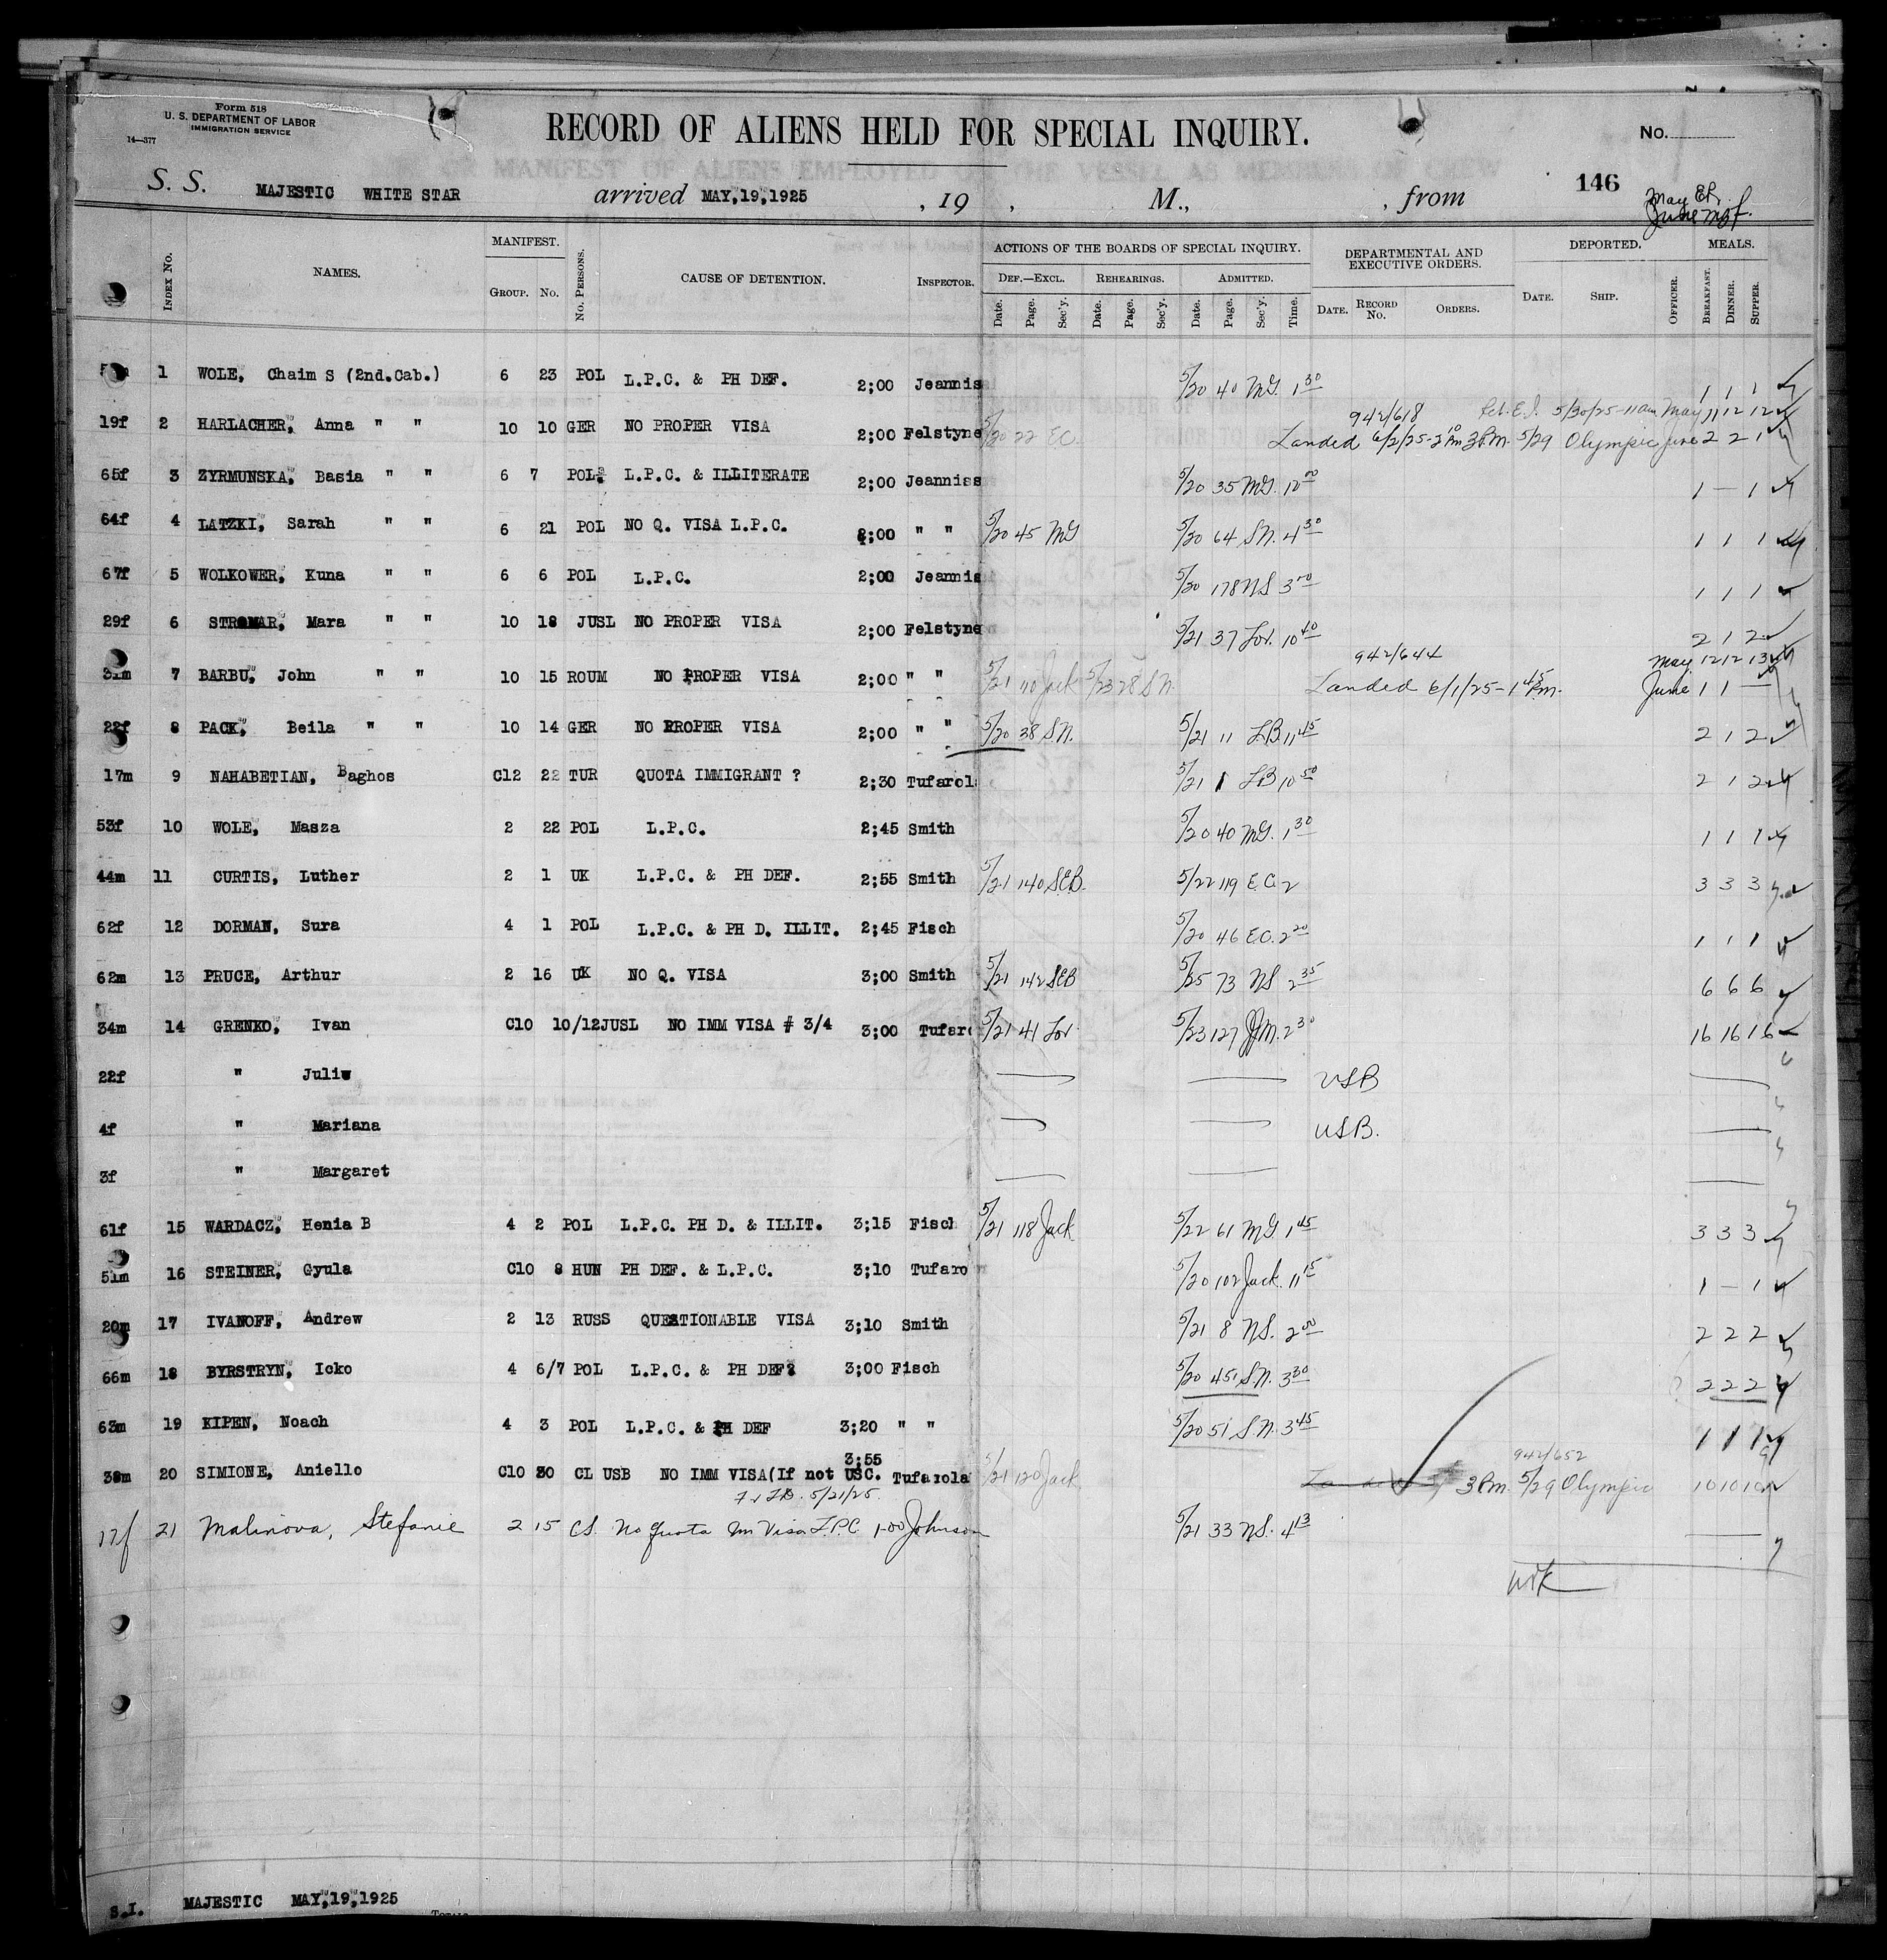 Form 518
U. S. DEPARTMENT OF LABOR
IMMIGRATION SERVICE
14—377
RECORD OF ALIENS HELD FOR SPECIAL INQUIRY.
No.
S. S. MAJESTIC WHITE STAR arrived MAY,19,1925 , 19 , M., , from 146
INDEX No. NAMES. MANIFEST. GROUP. No. No. PERSONS. CAUSE OF DETENTION. INSPECTOR. ACTIONS OF THE BOARDS OF SPECIAL INQUIRY. DEF.—EXCL. Date. Page. Sec'y. REHEARINGS. Date. Page. Sec'y. ADMITTED. Date. Page. Sec'y. Time. DEPARTMENTAL AND EXECUTIVE ORDERS. DATE. RECORD No. ORDERS. DEPORTED. DATE. SHIP. OFFICER. MEALS. BREAKFAST. DINNER. SUPPER.
1 WOLE, Chaim S (2nd.Cab.) 6 23 POL L.P.C. & PH DEF. 2;00 Jeannis 5/20 40 MG. 1 30 1 1 1
942/618 5/30/25-11am May 11 12 12
19f 2 HARLACHER, Anna " " 10 10 GER NO PROPER VISA 2;00 Felstyne 5/20 22 E.C. Landed 6/2/25-2 10 Pm 3Pm. 5/29 Olympic June 2 2 1
65f 3 ZYRMUNSKA, Basia " " 6 7 POL L.P.C. & ILLITERATE 2;00 Jeanniss 5/20 35 MG. 10 00 1 — 1
64f 4 LATZKI, Sarah " " 6 21 POL NO Q. VISA L.P.C. 2;00 " " 5/20 45 MG 5/20 64 SN. 4 30 1 1 1
67f 5 WOLKOWER, Kuna " " 6 6 POL L.P.C. 2;00 Jeannis 5/20 178 NS 3 00 1 1 1
29f 6 STROMAR, Mara " " 10 18 JUSL NO PROPER VISA 2;00 Felstyne 5/21 37 Lor. 10 40 2 1 2
942/644 May 12 12 13
31m 7 BARBU, John " " 10 15 ROUM NO PROPER VISA 2;00 " " 5/21 110 Jack 5/23 28 SN. Landed 6/1/25-1 45 Pm. June 1 1 —
22f 8 PACK, Beila " " 10 14 GER NO PROPER VISA 2;00 " " 5/20 38 SN. 5/21 11 LB 11 45 2 1 2
17m 9 NAHABETIAN, Baghos C12 22 TUR QUOTA IMMIGRANT ? 2;30 Tufarol 5/21 1 LB 10 50 2 1 2
53f 10 WOLE, Masza 2 22 POL L.P.C. 2;45 Smith 5/20 40 MG. 1 30 1 1 1
44m 11 CURTIS, Luther 2 1 UK L.P.C. & PH DEF. 2;55 Smith 5/21 140 SEB. 5/22 119 E.C. 2 3 3 3
62f 12 DORMAN, Sura 4 1 POL L.P.C. & PH D. ILLIT. 2;45 Fisch 5/20 46 E.C. 2 20 1 1 1
62m 13 PRUCE, Arthur 2 16 UK NO Q. VISA 3;00 Smith 5/21 142 SEB 5/25 73 NS 2 35 6 6 6
34m 14 GRENKO, Ivan C10 10/12 JUSL NO IMM VISA # 3/4 3;00 Tufaro 5/21 41 Lor. 5/23 127 2 30 16 16 16
22f " — — USB —
4f " Mariana — — USB. —
3f " Margaret — — —
61f 15 WARDACZ, Henia B 4 2 POL L.P.C. PH D. & ILLIT. 3;15 Fisch 5/21 118 Jack 5/22 61 MG 1 45 3 3 3
51m 16 STEINER, Gyula C10 8 HUN PH DEF. & L.P.C. 3;10 Tufaro 5/20 102 Jack. 11 15 1 — 1
20m 17 IVANOFF, Andrew 2 13 RUSS QUESTIONABLE VISA 3;10 Smith 5/21 8 NS. 2 00 2 2 2
66m 18 BYRSTRYN, Icko 4 6/7 POL L.P.C. & PH DEF 3;00 Fisch 5/20 45 SN. 3 30 2 2 2
63m 19 KIPEN, Noach 4 3 POL L.P.C. & PH DEF 3;20 " " 5/20 51 SN. 3 45 1 1 1
3;55 942/652
38m 20 SIMIONE, Aniello C10 30 CL USB NO IMM VISA(If not USC. Tufarola 5/21 120 Jack 3Pm. 5/29 Olympic 10 10 10
5/21/25.
17f 21 Malinova, Stefanie 2 15 CS. No Quota Im Visa L.P.C. 1-00 Johnson 5/21 33 NS. 4 13 —
S.I. MAJESTIC MAY,19,1925